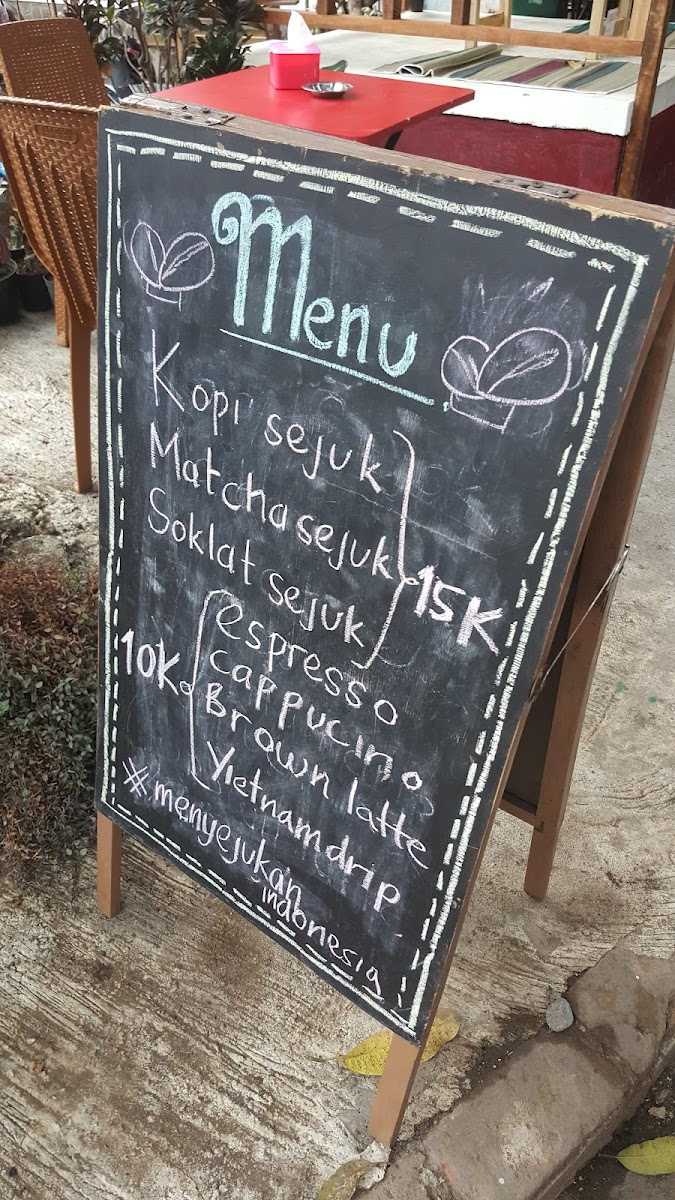 Menu
Kopi sejuk
Matcha sejuk
Soklat sejuk
15K
10K
espresso
cappucino
Brown latte
Vietnam drip
#menyejukan
indonesia